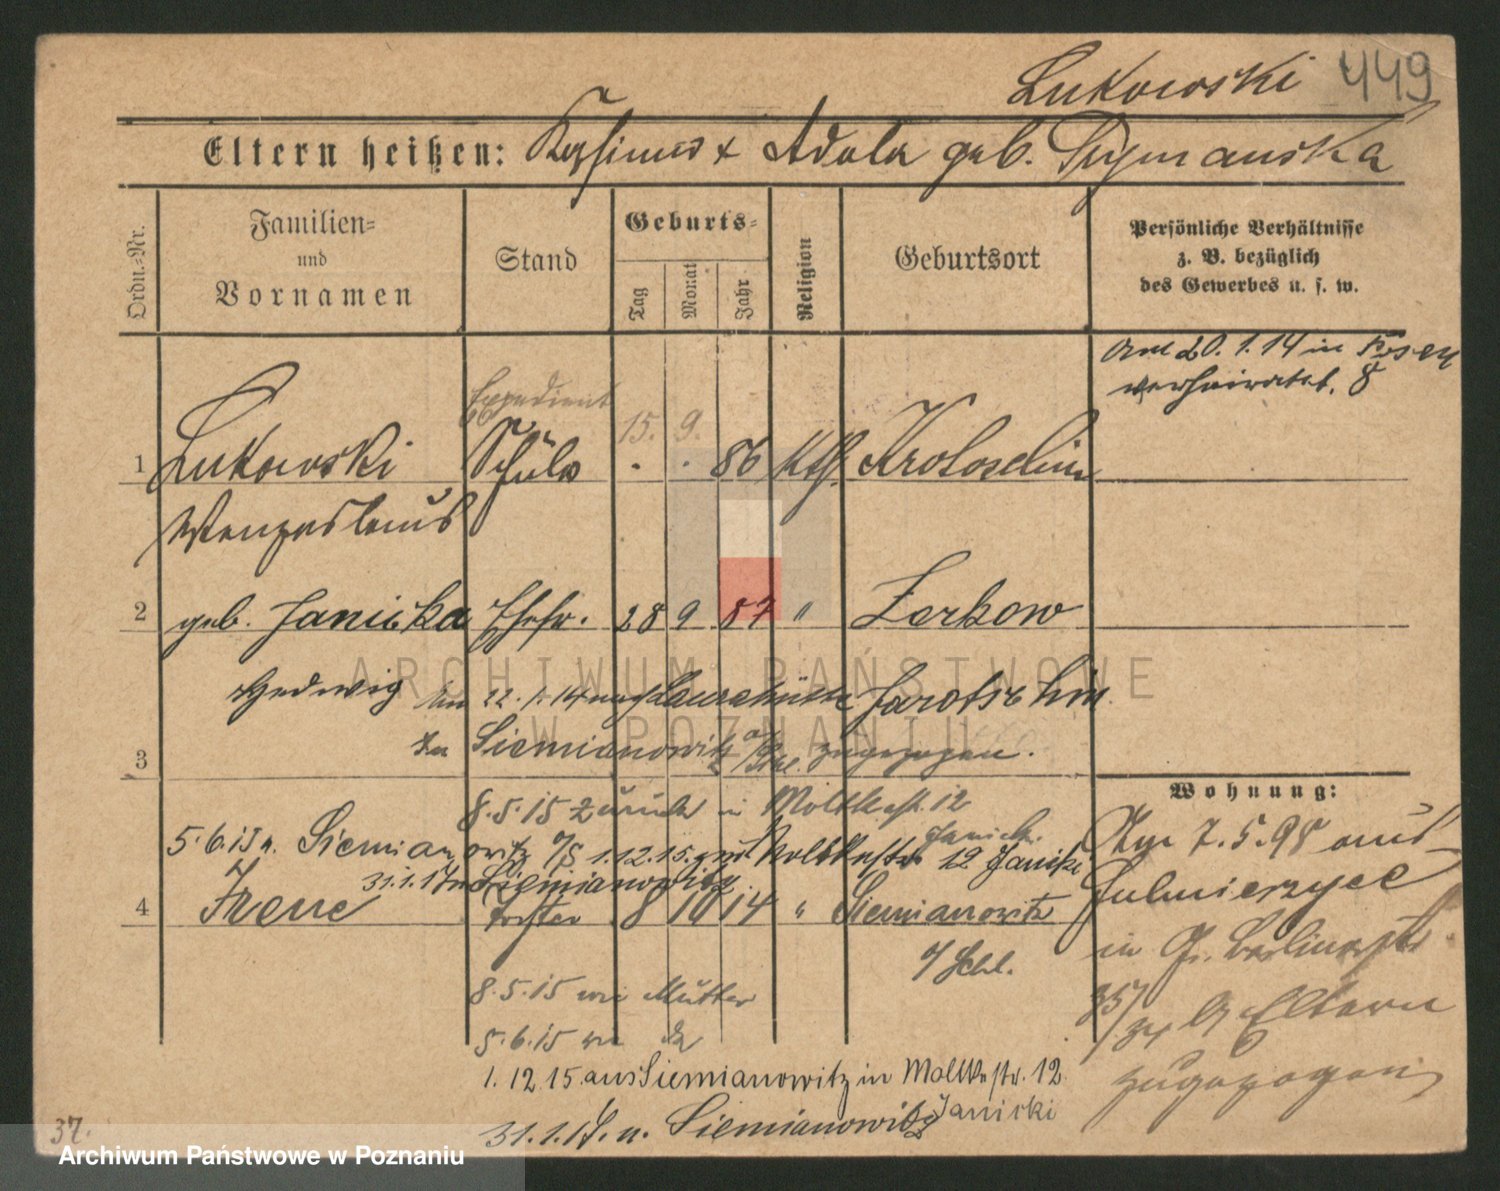 Lukowski 449
Eltern heißen: Kasimir + Adela geb. Szymanska
Ordn.-Nr.
Familien-
und
Vornamen
Stand
Geburts-
Tag
Monat
Jahr
Religion
Geburtsort
Persönliche Verhältnisse
z. B. bezüglich
des Gewerbes u. s. w.
Am 20.1.14 in Posen
verheiratet. 8
Expedient
15. 9.
1 Lukowski Schüler . . 86 kth. Krotoschin
Wenzeslaus
2 geb. Janicka Ehefr. 28 9 87 " Zerkow
Hedwig Am 22.1.14 nach Laurahütte Jarotschin
3 Siemianowitz zugezogen.
Wohnung:
8.5.15 zurück in Moltkestr. 12
5.6.15 n. Siemianowitz O/S 1.12.15 Moltkestr 12 Janicki
31.1.17 n Siemianowitz
4 Irene Tochter 8 10 14 " Siemianowitz
O/Schl.
Am 7.5.98 aus
Sulmierzyce
in Gr. Berlinerstr.
35/ Eltern
zugezogen
8.5.15 wie Mutter
5.6.15
1.12.15 aus Siemianowitz in Moltkestr. 12
Janicki
31.1.17. n. Siemianowitz
37.
ARCHIWUM PAŃSTWOWE
W POZNANIU
Archiwum Państwowe w Poznaniu